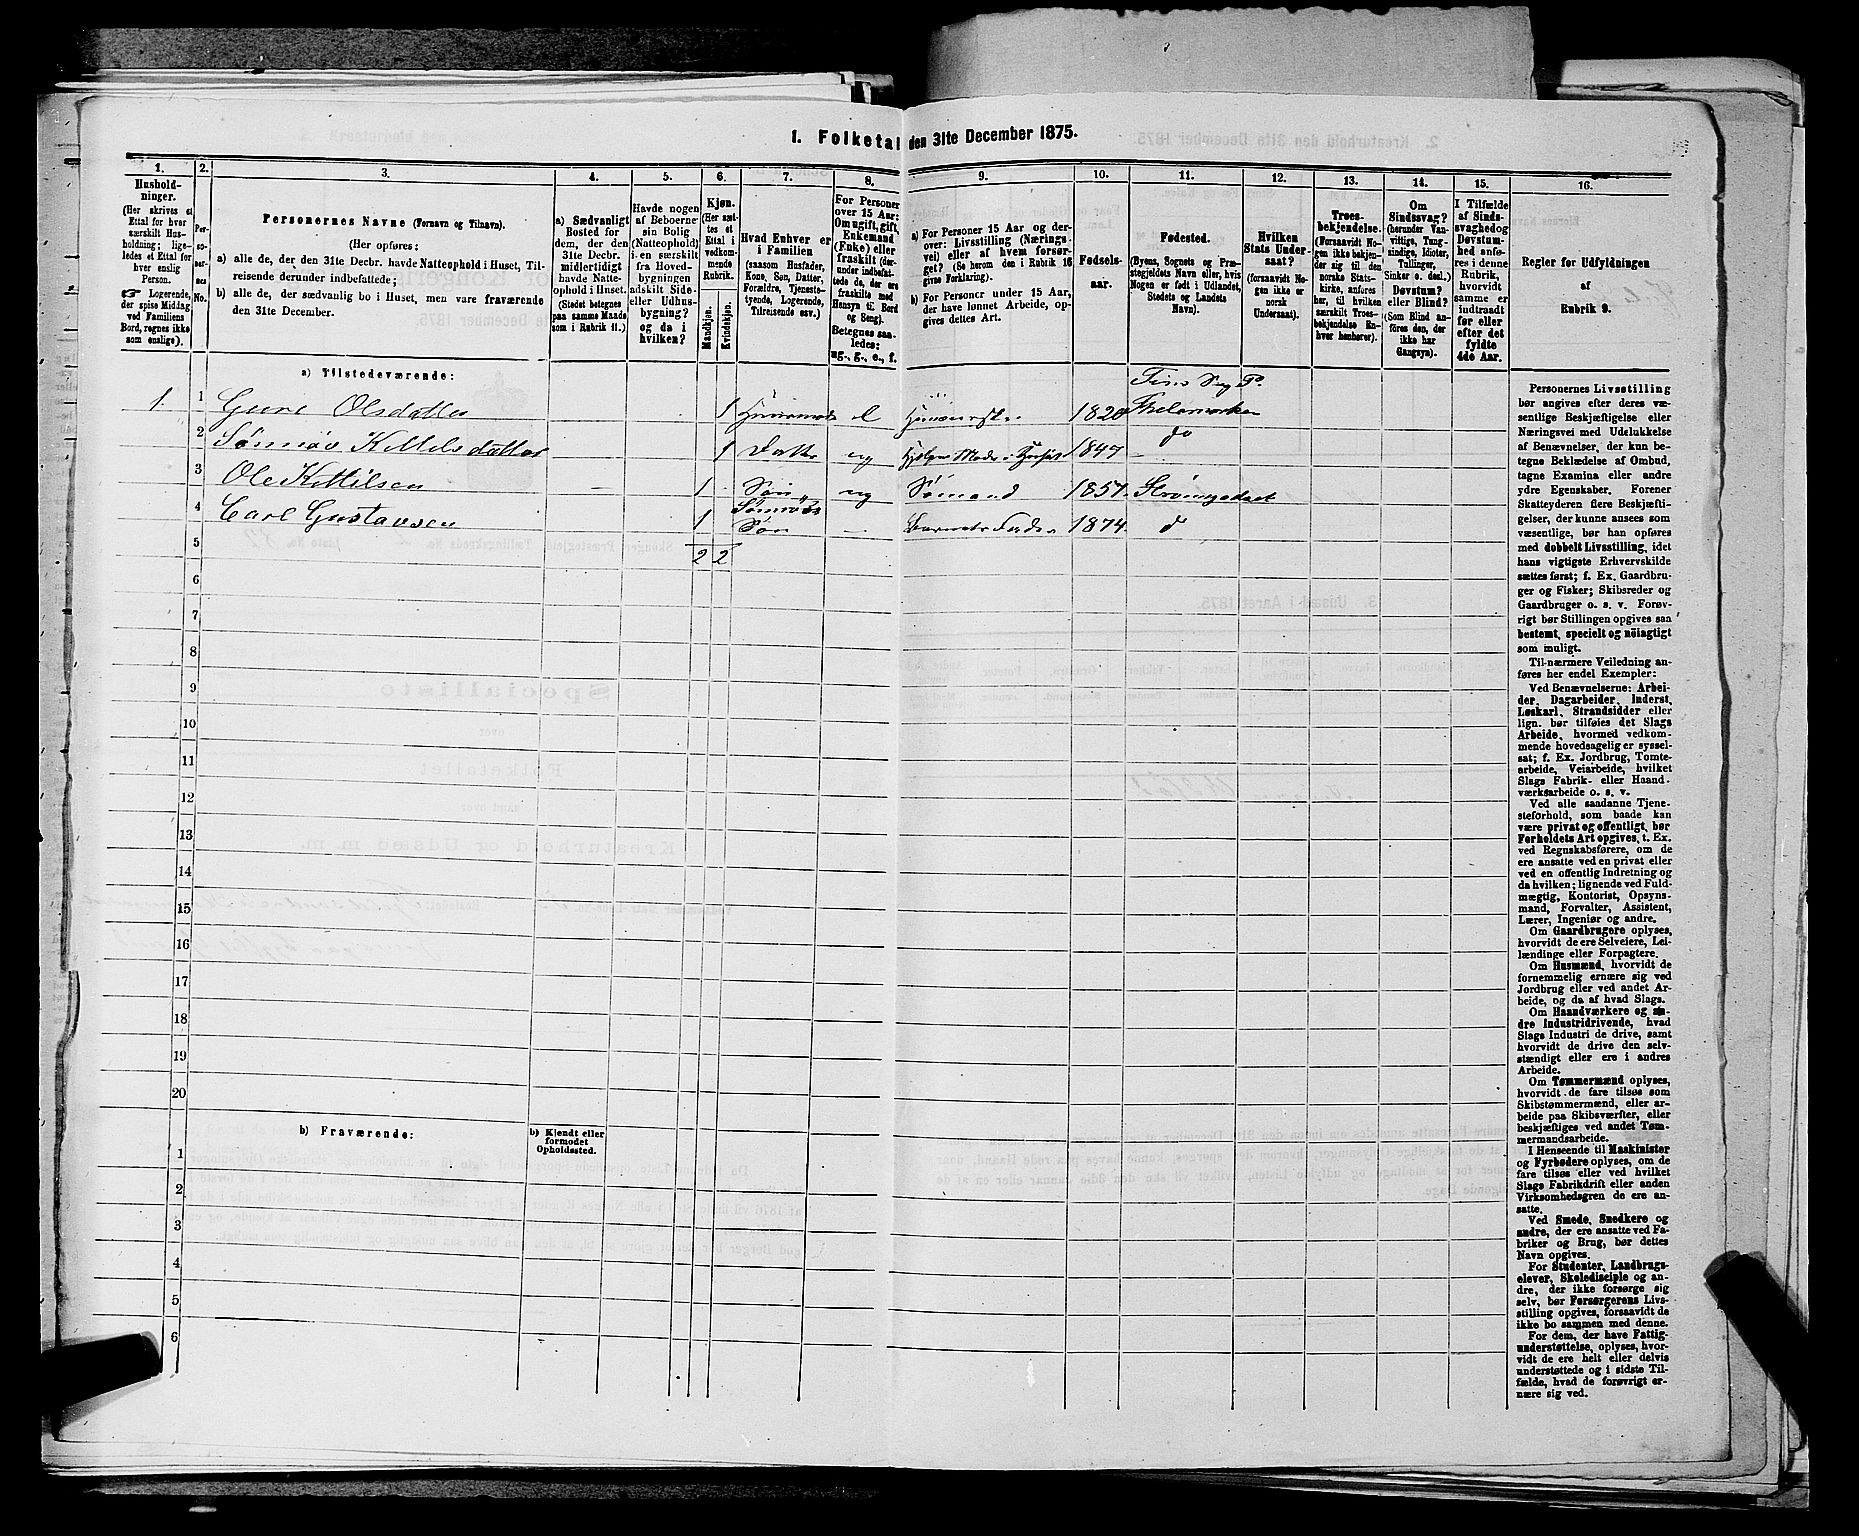 1. Folketal den 31te December 1875.
1.
2.
3.
4.
5.
6.
7.
8.
9.
10.
11.
12.
13.
14.
15.
16.
Hushold-
ninger.
(Her skrives et
Ettal for hver
særskilt Hus-
holdning; lige-
ledes et Ettal for
hver enslig
Person.
☞ Logerende,
der spise Middag
ved Familiens
Bord, regnes ikke
som enslige).
Per-
so-
ner-
nes
No.
Personernes Navne (Fornavn og Tilnavn).
(Her opføres:
a) alle de, der den 31te Decbr. havde Natteophold i Huset, Til-
reisende derunder indbefattede;
b) alle de, der sædvanlig bo i Huset, men vare fraværende
den 31te December.
a) Sædvanligt
Bosted for
dem, der den
31te Decbr.
midlertidigt
havde Natte-
ophold i Huset.
(Stedet betegnes
paa samme Maade
som i Rubrik 11.)
Havde nogen
af Beboerne
sin Bolig
(Natteophold)
i en særskilt
fra Hoved-
bygningen
adskilt Side-
eller Udhus-
bygning?
og da i
hvilken?
Kjøn.
(Her sæt-
tes et
Ettal i
vedkom-
mende
Rubrik.
Mandkjøn.
Kvindekjøn.
Hvad Enhver er
i Familien
(saasom Husfader,
Kone, Søn, Datter,
Forældre, Tjeneste-
tyende, Logerende,
Tilreisende osv.)
For Personer
over 15 Aar:
Om ugift, gift,
Enkemand
(Enke) eller
fraskilt (der-
under indbefat-
tede de, der ere
fraskilte med
Hensyn til Bord
og Seng).
Betegnes saa-
ledes:
ug., g., e., f.
a) For Personer 15 Aar og der-
over: Livsstilling (Nærings-
vei) eller af hvem forsør-
get? (Se herom den i Rubrik 16
givne Forklaring).
b) For Personer under 15 Aar,
der have lønnet Arbeide, op-
gives dettes Art.
Fødsels-
aar.
Fødested.
(Byens, Sognets og Præ-
stegjeldets Navn eller, hvis
Nogen er født i Udlandet,
Stedets og Landets
Navn).
Hvilken
Stats Under-
saat?
(forsaavidt No-
gen ikke er
norsk
Undersaat).
Troes-
bekjendelse.
(Forsaavidt No-
gen ikke bekjen-
der sig til den
norske Stats-
kirke, anføres
her, til hvilken
særskilt Troes-
bekjendelse En-
hver henhører).
Om
Sindssvag?
(herunder Van-
vittige, Tung-
sindige, Idioter,
Tullinger,
Sinker o. desl.)
Døvstum?
eller Blind?
(Som Blind an-
føres den, der
ikke har
Gangsyn).
I Tilfælde
af Sinds-
svaghed og
Døvstum-
hed anfø-
res i denne
Rubrik,
hvorvidt
samme er
indtraadt
før eller
efter det
fyldte
4de Aar.
Regler for Udfyldningen
af
Rubrik 9.
a) Tilstedeværende:
1 1 Olsdatter 1 1820
2 1 Datter ug 1847 do
3 Ole Kittilsen 1 Søn ug Sømand 1857
4 Carl Gustavsen 1 Søn 1874 d
5 2 2
6
7
8
9
10
11
12
13
14
15
16
17
18
19
20
b) Fraværende:
b) Kjendt eller
formodet
Opholdssted.
1
2
3
4
5
6
Personernes Livsstilling
bør angives efter deres væ-
sentlige Beskjæftigelse eller
Næringsvei med Udelukkelse
af Benævnelser, der kun be-
tegne Beklædelse af Ombud,
tagne Examina eller andre
ydre Egenskaber. Forener
Skatteyderen flere Beskjæfti-
gelser, der kunne ansees som
væsentlige, bør han opføres
med dobbelt Livsstilling, idet
hans vigtigste Erhvervskilde
sættes først; f. Ex. Gaardbru-
ger og Fisker; Skibsreder og
Gaardbruger o. s. v. Forøv-
rigt bør Stillingen opgives saa
bestemt, specielt og nöiagtigt
som muligt.
Til nærmere Veiledning an-
føres her endel Exempler:
Ved Benævnelserne: Arbei-
der, Dagarbeider, Inderst,
Løskarl, Strandsidder eller
lign. bør tilføies det Slags
Arbeide, hvormed vedkom-
mende hovedsagelig er syssel-
sat; f. Ex. Jordbrug, Tomte-
arbeide, Veiarbeide, hvilket
Slags Fabrik- eller Haand-
værksarbeide o. s. v.
Ved alle saadanne Tjene-
steforhold, som baade kan
være privat og offentligt, bør
Forholdets Art opgives, t. Ex.
ved Regnskabsførere, om de
ere ansatte ved en privat eller
ved en offentlig Indretning og
da hvilken; lignende ved Fuld-
mægtig, Kontorist, Opsyns-
mand, Forvalter, Assistent,
Lærer, Ingeniør og andre.
Om Gaardbrugere oplyses,
hvorvidt de ere Selveiere, Lei-
lændinge eller Forpagtere.
Om Husmænd, hvorvidt de
fornemmelig ernære sig ved
Jordbrug eller ved andet Ar-
beide, og da af hvad Slags.
Om Haandværkere og an-
dre Industridrivende, hvad
Slags Industri de drive, samt
hvorvidt de drive den selv-
stændigt eller ere i andres
Arbeide.
Om Tømmermænd oplyses,
hvorvidt de fare tilsøs som
Skibstømmermænd, eller ar-
beide paa Skibsværfter, eller
beskjæftiges ved andet Tøm-
mermandsarbeide.
I Henseende til Maskinister
og Fyrbødere oplyses, om de
fare tilsøs eller ved hvilket
Slags Fabrikdrift eller anden
Virksomhedsgren de ere an-
satte.
Ved Smede, Snedkere og
andre, der ere ansatte ved Fa-
briker og Brug, bør dettes
Navn opgives.
For Studenter, Landbrugs-
elever, Skoledisciple og an-
dre, der ikke forsørge sig
selv, bør Forsørgerens Livs-
stilling opgives, forsaavidt de
ikke bo sammen med denne.
For dem, der have Fattig-
understøttelse, oplyses, hvor-
vidt de ere helt eller delvis
understøttede og i sidste Til-
fælde, hvad de forøvrigt er-
nære sig ved.